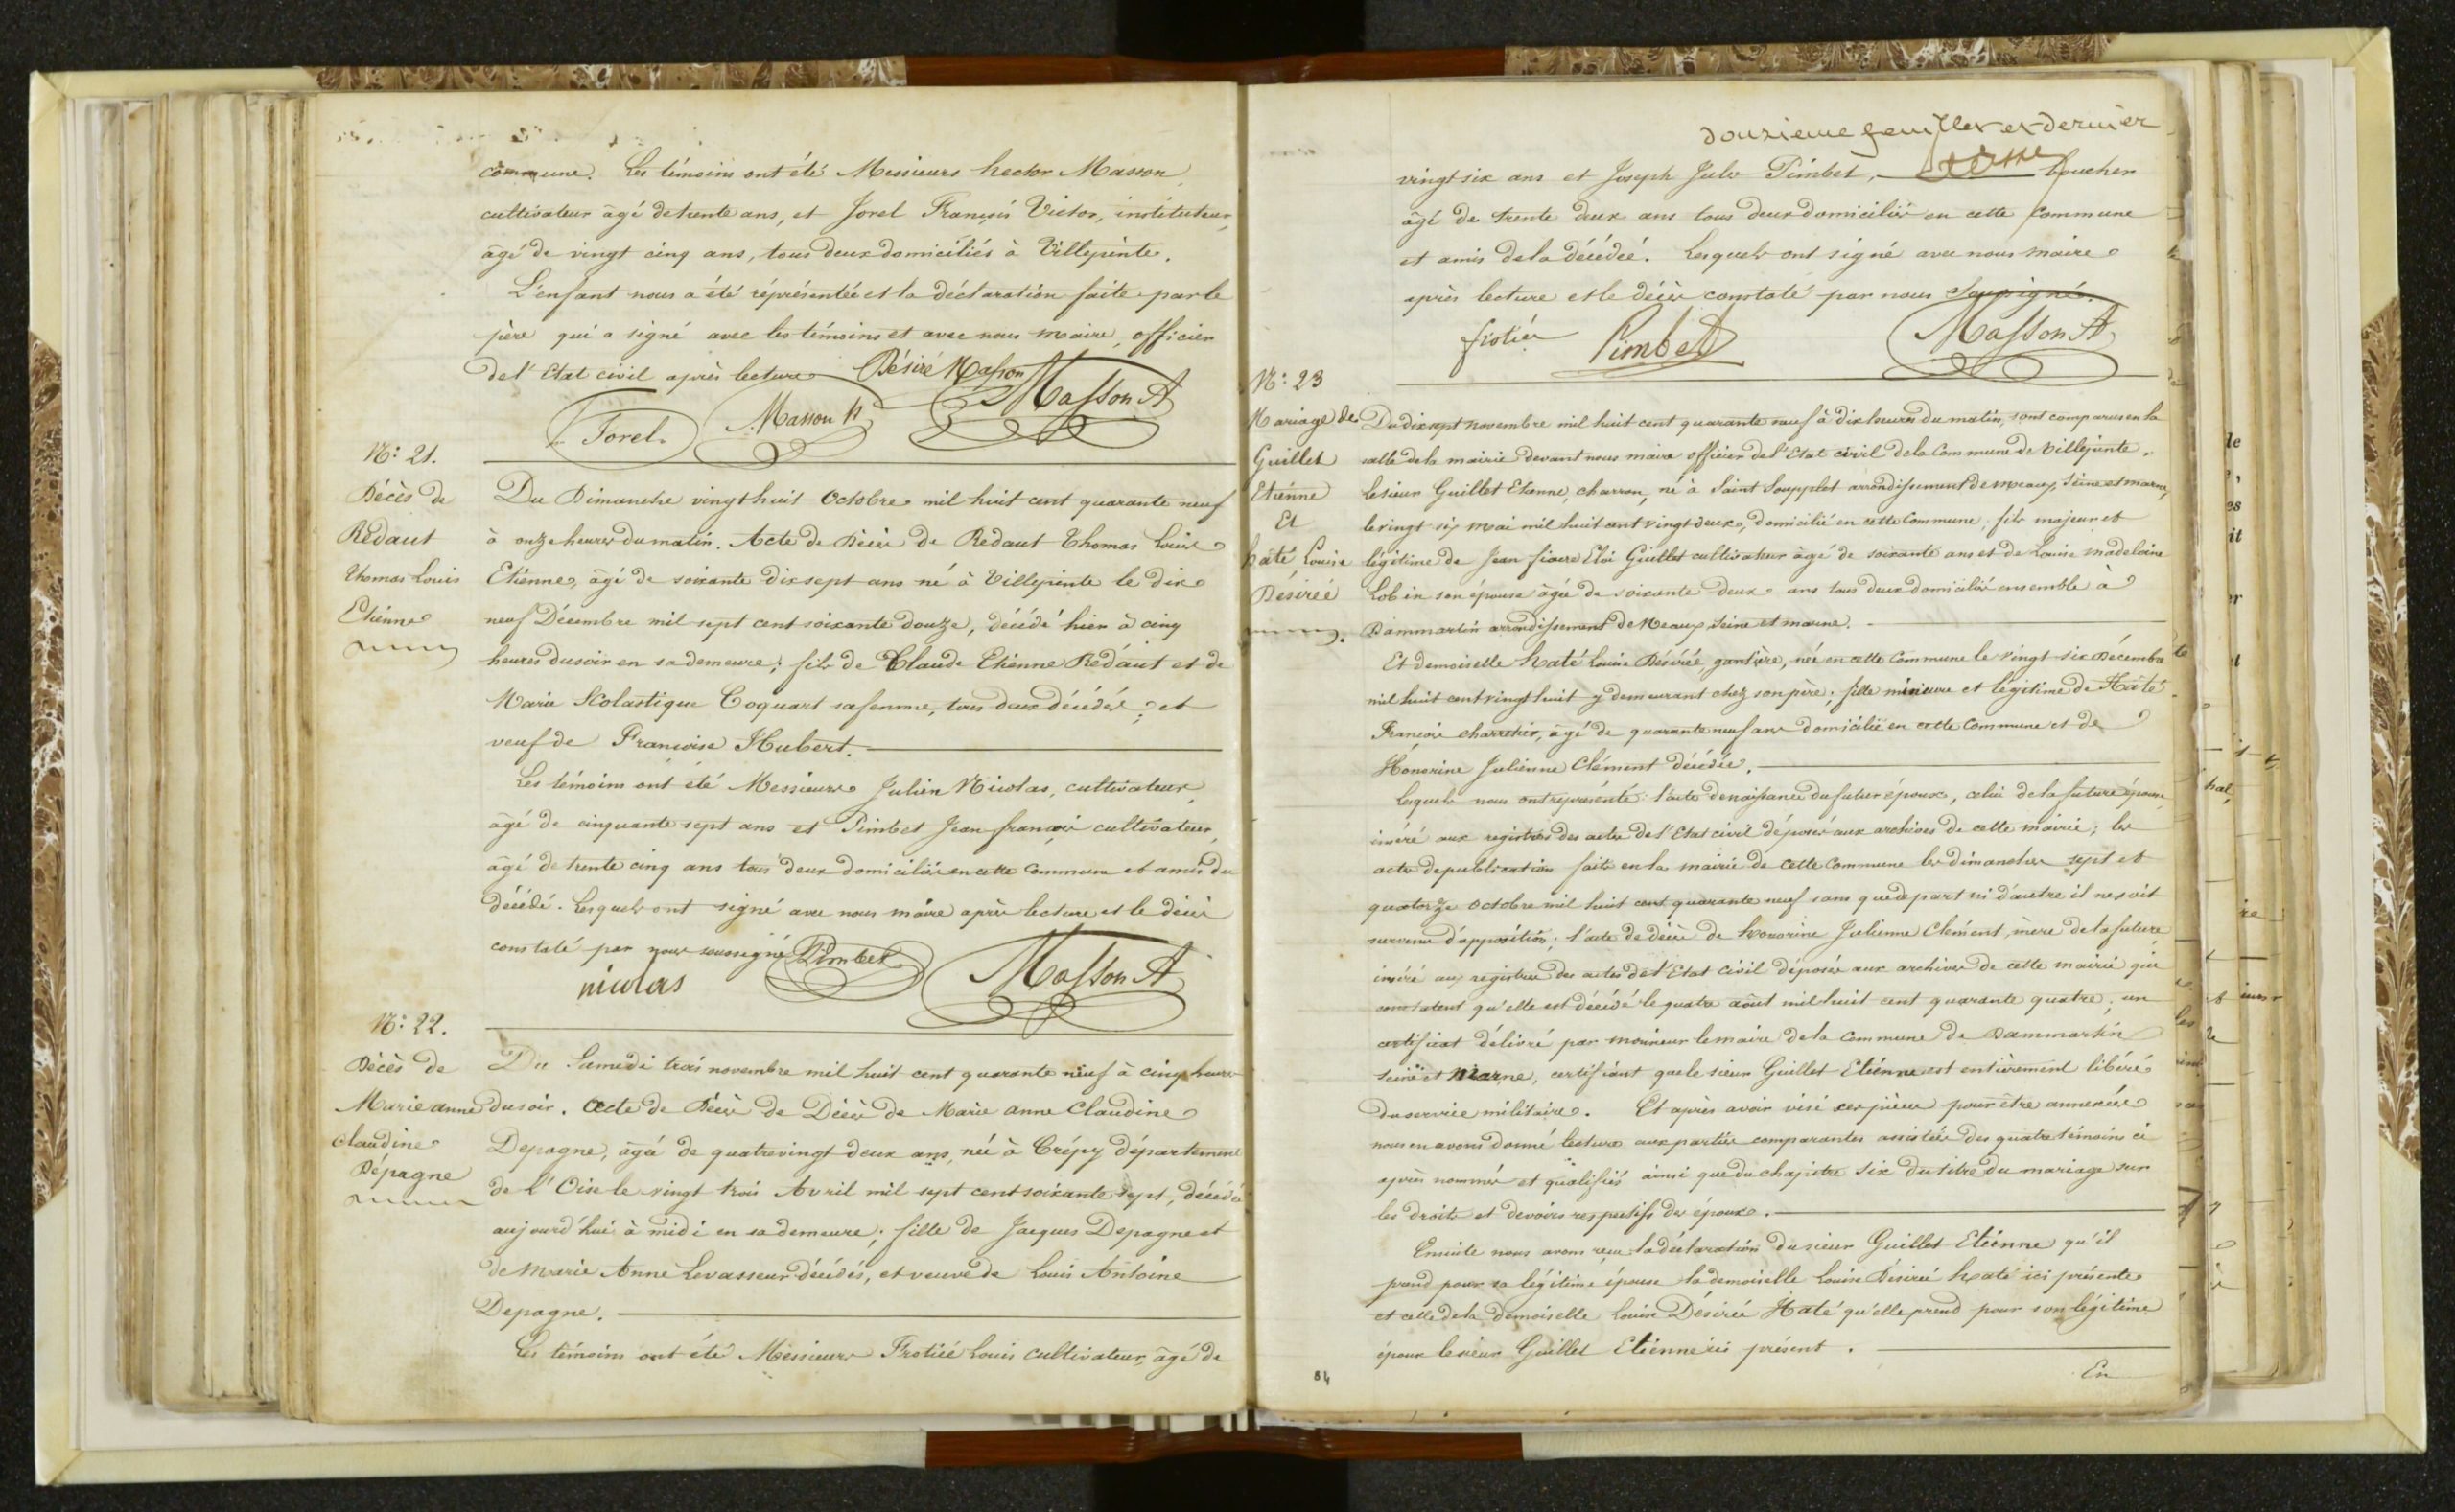 commune. Les témoins ont été Messieurs hector Masson,
cultivateur âgé de trente ans, et Jorel François Victor, instituteur,
âgé de vingt cinq ans, tous deux domiciliés à Villepinte.
L'enfant nous a été réprésentée et la déclaration faite par le
père qui a signé avec les témoins et avec nous maire, officier
de l'Etat civil après lecture
Désiré Masson
Masson A
Masson h
Jorel
N°: 21.
Décès de
Redaut
Thomas Louis
Etienne
Du Dimanche vingt huit Octobre mil huit cent quarante neuf
à onze heures du matin. Acte de Décès de Redaut Thomas Louis
Etienne, âgé de soixante dix sept ans né à Villepinte le dix
neuf Décembre mil sept cent soixante douze, décédé hier à cinq
heures du soir en sa demeure; fils de Claude Etienne Redaut et de
Marie Scolastique Coquart sa femme, tous deux décédés; et
veuf de Françoise Hubert.
Les témoins ont été Messieurs Julien Nicolas, cultivateur,
âgé de cinquante sept ans et Pimbet Jean françois cultivateur,
âgé de trente cinq ans tous deux domiciliés en cette commune et amis du
décédé. Lesquels ont signé avec nous maire après lecture et le décès
constaté par nous soussigné
Pimbet
nicolas
Masson A
N°: 22.
Décès de
Marie anne
Claudine
Dépagne
Du Samedi trois novembre mil huit cent quarante neuf à cinq heures
du soir. Acte de Décès de Décès de Marie anne Claudine
Depagne, âgée de quatrevingt deux ans, née à Crépy département
de l'Oise le vingt trois Avril mil sept cent soixante sept, décédée
aujourd'hui à midi en sa demeure; fille de Jacques Depagne et
de Marie Anne Levasseur décédés, et veuve de Louis Antoine
Depagne.
Les témoins ont été Messieurs Frotiée Louis cultivateur, âgé de
douzieme feuillet et dernier
vingt six ans et Joseph Jules Pimbet, boucher
âgé de trente deux ans tous deux domiciliés en cette commune
et amis de la décédée. Lesquels ont signé avec nous maire
après lecture et le décès constaté par nous Soussigné.
Pimbet
Masson A
N°: 23
Mariage de
Guillet
Etienne
Et
haté, Louise
Désirée
Du dix sept novembre mil huit cent quarante neuf à dix heures du matin, sont comparus en la
salle de la mairie devant nous maire officier de l'Etat civil de la Commune de Villepinte,
le sieur Guillet Etienne, charron, né à Saint Soupplet arrondissement de meaux, Seine et marne,
le vingt six mai mil huit cent vingt deux, domicilié en cette Commune, fils majeur et
légitime de Jean fiacre Eloi Guillet cultivateur âgé de soixante ans et de Louise madelaine
Lobin son épouse âgée de soixante deux ans tous deux domiciliés ensemble à
Dammartin arrondissement de Meaux Seine et marne.
Et demoiselle haté Louise Désirée, gantière, née en cette Commune le vingt six Décembre
mil huit cent vingt huit y demeurant chez son père; fille mineure et légitime de Haté
François charretier, âgé de quarante neuf ans domicilié en cette Commune et de
Honorine Julienne Clément décédée.
Lesquels nous ont représenté: l'acte de naissance du futur époux, celui de la future épouse,
inséré aux registres des actes de l'Etat civil déposés aux archives de cette mairie; les
actes de publication faits en la mairie de cette Commune les dimanches sept et
quatorze octobre mil huit cent quarante neuf sans que de part ni d'autre il ne soit
survenu d'apposition; l'acte de décès de honorine Julienne Clément, mère de la future
inséré aux registres des actes de l'Etat civil déposés aux archives de cette mairie qui
constatent qu'elle est décédé le quatre août mil huit cent quarante quatre, un
certificat délivré par monsieur le maire de la commune de Dammartin
Seine et Marne, certifiant que le sieur Guillet Etienne est entièrement libéré
du service militaire. Et après avoir visé ces pièces pour être annexées
nous en avons donné lecture aux parties comparantes assistées des quatre témoins ci
après nommés et qualifiés ainsi que du chapitre Six du titre du mariage sur
les droits et devoirs respectifs des époux.
Ensuite nous avons reçu la déclaration du sieur Guillet Etienne qu'il
prend pour sa légitime épouse la demoiselle Louise Désirée haté ici présente
et celle de la demoiselle Louise Désirée Haté qu'elle prend pour son légitime
époux le sieur Guillet Etienne ici présent.
En
84